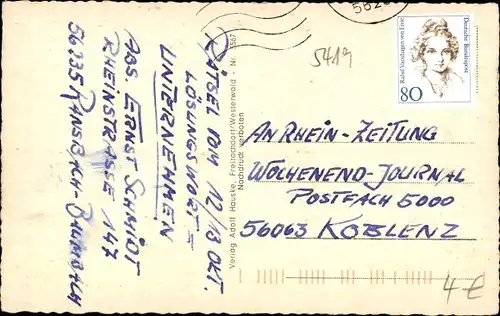 RÄTSEL VOM 12/13 OKT.
LÖSUNGSWORT =
UNTERNEHMEN
ABS ERNST SCHMIDT
RHEINSTRASSE 147
56235 RANSBACH-BAUMBACH
Verlag Adolf Hauske, Freirachdorf/Westerwald - Nr. 1567
Nachdruck verboten
5419
Rahel Varnhagen von Ense
Deutsche Bundespost
80
AN RHEIN-ZEITUNG
WOCHENEND-JOURNAL
POSTFACH 5000
56063 KOBLENZ
4 €